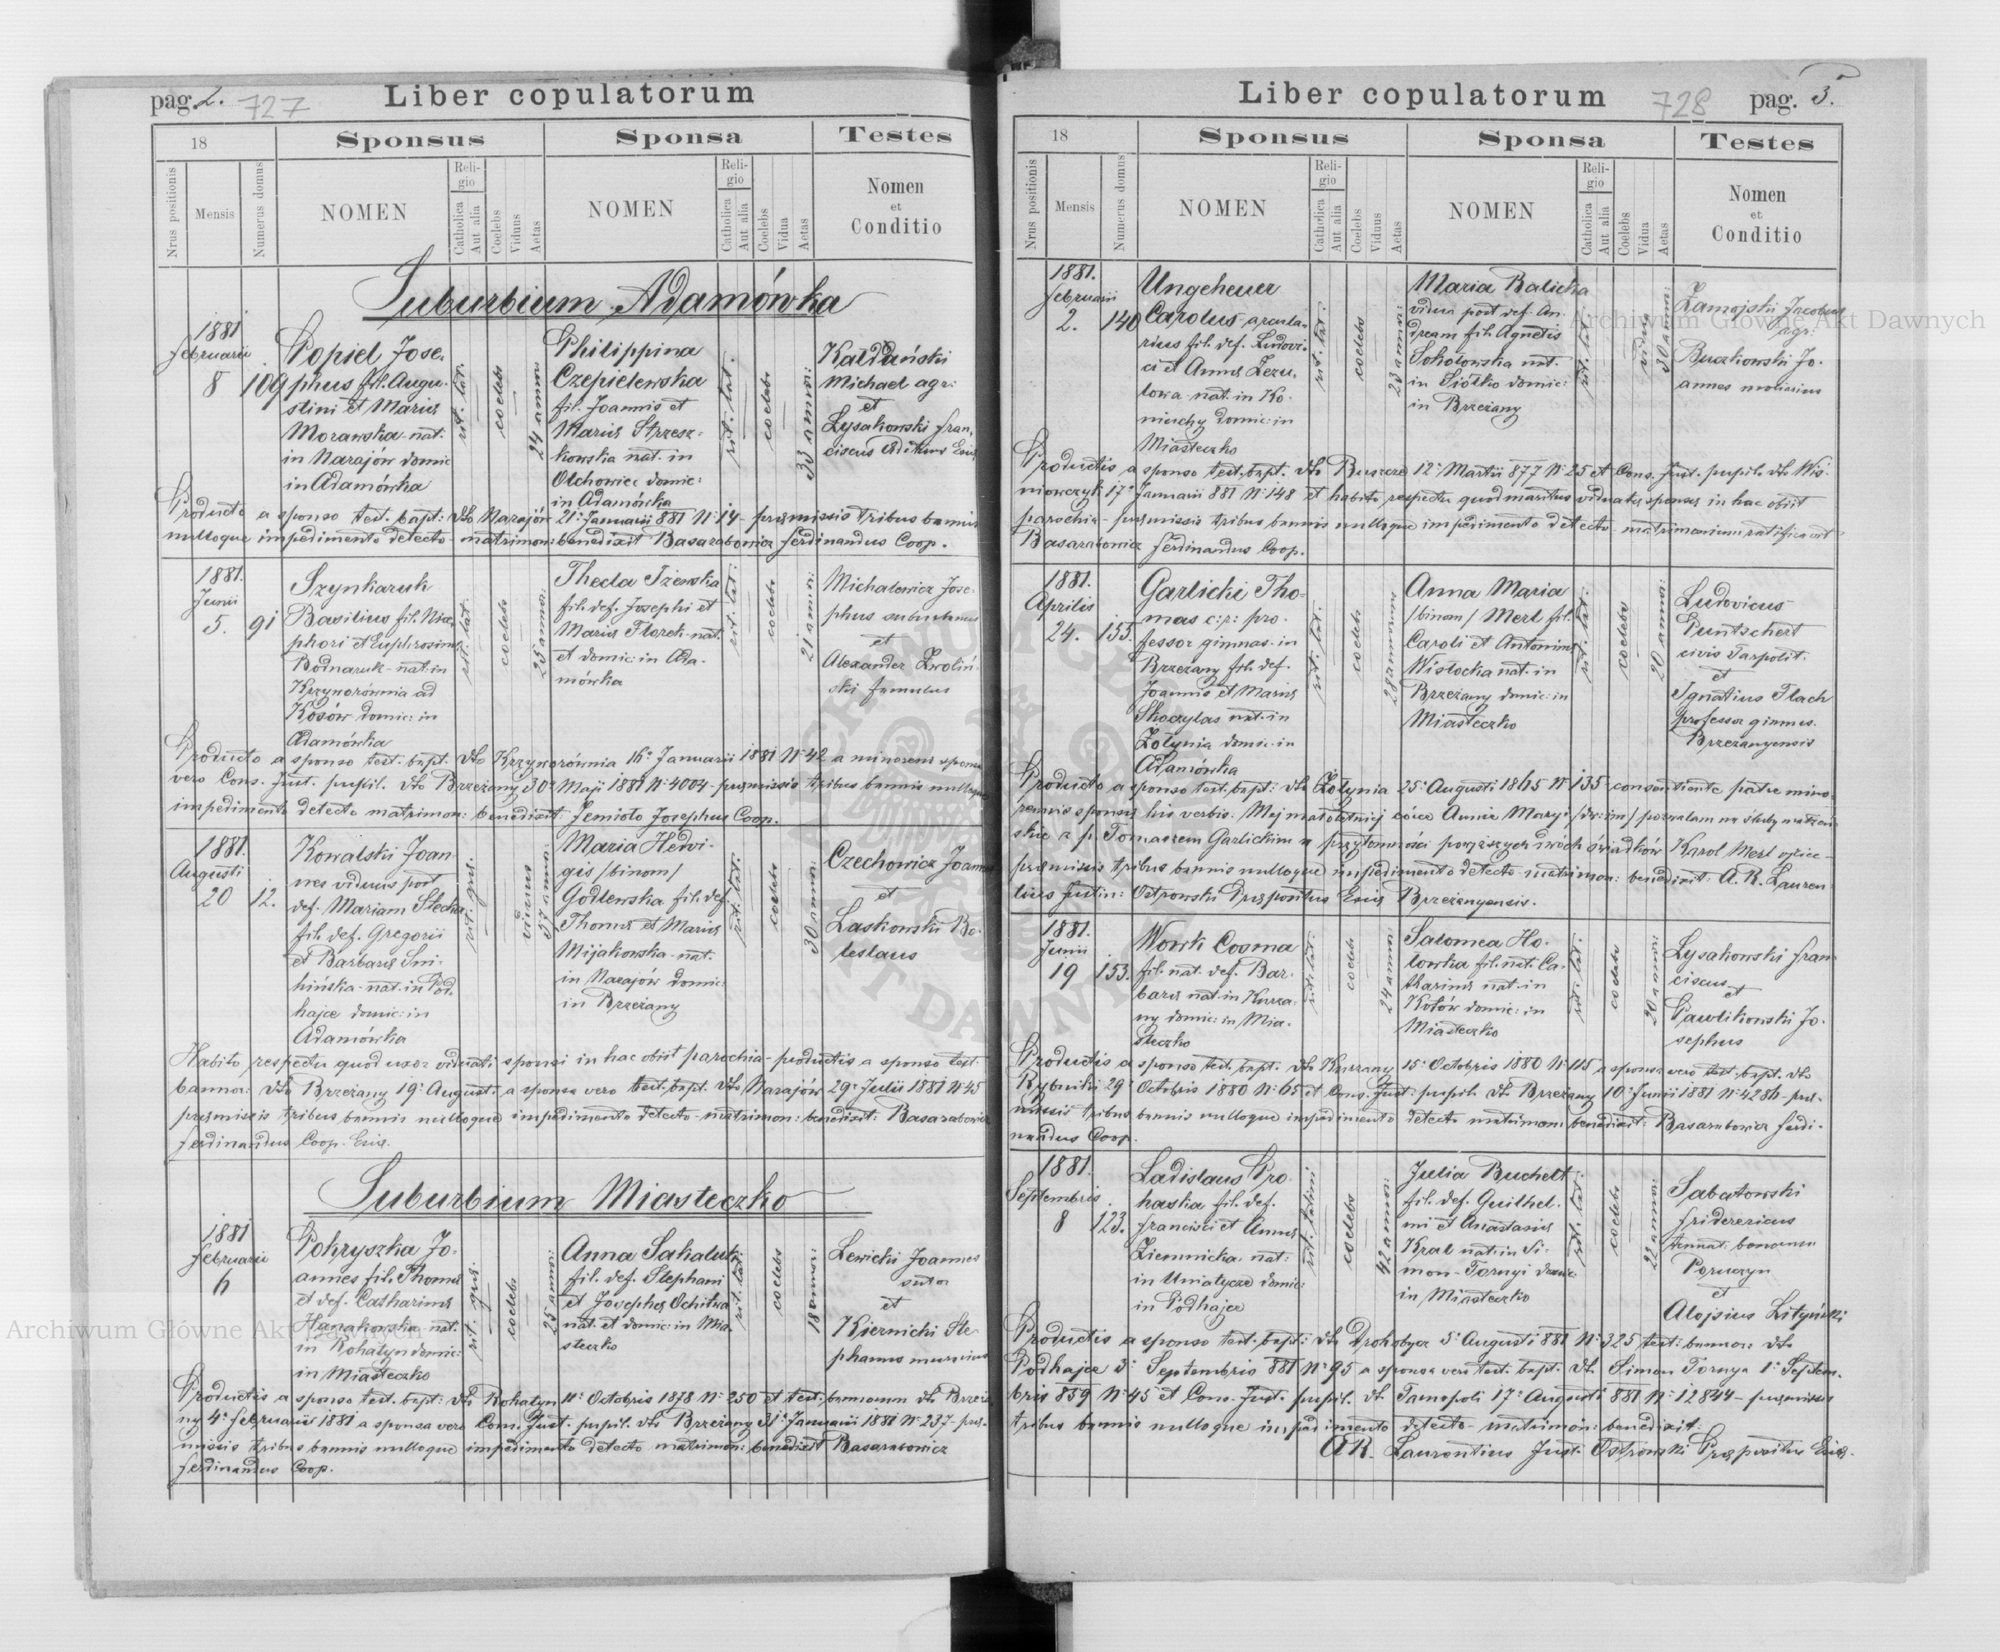 pag. 2. 727 Liber copulatorum
18 Sponsus Sponsa Testes
Nrus positionis Mensis Numerus domus NOMEN Religio Catholica Aut alia Coelebs Viduus Aetas NOMEN Religio Catholica Aut alia Coelebs Vidua Aetas Nomen et Conditio
Suburbium Adamówka
1881
Februarii
8 109
Popiel Jose-
phus fil. Augu-
stini et Mariae
Morawska nat.
in Narajów domic
in Adamówka
rit. lat.
coelebs
24 annor
Philippina
Czepielewska
fil. Joannis et
Mariae Strzesz-
kowska nat. in
Olchowiec domic:
in Adamówka
rit. lat.
coelebs
33 annor:
Kałduński
Michael agr:
et
Lysakowski Fran-
ciscus aedituus Eccl.
Producto a sponso test. bapt: dto Narajów 21a Januarii 881 No 14 - praemissis tribus bannis
nulloque impedimento detecto - matrimon: benedixit Basarabowicz Ferdinandus Coop.
1881.
Junii
5. 91
Szynkaruk
Basilius fil. Nice-
phori et Euphrosinae
Bodnaruk - nat. in
Krzyworównia ad
Kosów domic: in
Adamówka
rit. lat.
coelebs
25 annor:
Thecla Iżewska
fil. def. Josephi et
Mariae Florek nat.
et domic: in Ada-
mówka
rit. lat.
coelebs
21 annor:
Michalewicz Jose-
phus
et
Alexander Zwoliń-
ski famulus
Producto a sponso test. bapt. dto Krzyworównia 16a Januarii 1881 No 42 a minorens sponsa
vero Cons. Just. pupil. dto Brzeżany 30a Maji 1881 No 4004 - praemissis tribus bannis nulloque
impedimento detecto matrimon: benedixit: Jemioło Josephus Coop.
1881.
Augusti
20 12.
Kowalski Joan-
nes viduus post
def. Mariam Slecka
fil. def. Gregorii
et Barbarae Smi-
hińska - nat. in Pod-
hajce domic: in
Adamówka
viduus
37 annor:
Maria Hedvi-
gis /binom/
Godlewska fil. def.
Thomae et Mariae
Mijakowska - nat.
in Narajów domic:
in Brzeżany
rit. lat.
coelebs
30 annor:
Czechowicz Joannes
et
Laskowski Bo-
leslaus
Habito respectu quod uxor viduati sponsi in hac obiit parochia - productis a sponso test.
bannor: dto Brzeżany 19a August: a sponsa vero test. bapt. dto Narajów 29a Julii 1881 No 45
praemissis tribus bannis nulloque impedimento detecto - matrimon: benedixit: Basarabowicz
Ferdinandus Coop. Eccl.
Suburbium Miasteczko
1881
Februarii
6
Pokryszka Jo-
annes fil. Thomae
et def. Catharinae
Hanakowska nat.
in Rohatyn domic:
in Miasteczko
coelebs
25 annor:
Anna Sakaluk
fil. def. Stephani
et Josephae Ochitwa
nat. et domic: in Mia-
steczko
rit. lat.
coelebs
18 annor:
Lewicki Joannes
sutor
et
Kiernicki Ste-
phanus murarius
Productis a sponso test. bapt: dto Rohatyn 11a Octobris 1878 No 250 et test. bannorum dto Brzeża-
ny 4a Februarii 1881 a sponsa vero Cons. Just. pupil. dto Brzeżany 31a Januarii 1881 No 237 prae-
missis tribus bannis nulloque impedimento detecto matrimon: benedixit Basarabowicz
Ferdinandus Coop.
Liber copulatorum 728 pag. 3.
18 Sponsus Sponsa Testes
Nrus positionis Mensis Numerus domus NOMEN Religio Catholica Aut alia Coelebs Viduus Aetas NOMEN Religio Catholica Aut alia Coelebs Vidua Aetas Nomen et Conditio
1881.
Februarii
2. 140
Ungeheuer
Carolus arcula-
rius fil. def. Ludovi-
ci et Annae
nat. in Ko-
niuchy domic: in
Miasteczko
rit. lat.
coelebs
23 annor:
Maria Balicka
vidua post def. An-
dream fil. Agnetis
Sokołowska nat.
in Siółko domic:
in Brzeżany
rit. lat.
vidua
30 annor:
Zamojski Jacobus
agr.
Buczkowski Jo-
annes
Productis a sponso test. bapt. dto Buszcze 12a Martii 877 No 25 et Cons. Just. pupil. dto Wiś-
niowczyk 17a Januarii 881 No 148 et habito respectu quod maritus viduatae sponsae in hac obiit
parochia - praemissis tribus bannis nulloque impedimento detecto - matrimonium ratificavit
Basarabowicz Ferdinandus Coop.
1881.
Aprilis
24. 155.
Garlicki Tho-
mas c: r: pro-
fessor gimnas. in
Brzeżany fil. def.
Joannis et Mariae
Skoczylas nat. in
Żołynia domic. in
Adamówka
rit. lat.
coelebs
28 annor
Anna Maria
/binom/ Merl fil.
Caroli et Antoninae
Wisłocka nat. in
Brzeżany domic: in
Miasteczko
rit. lat.
coelebs
20 annor:
Ludovicus
Puntschert
civis Tarpolit.
et
Ignatius Flach
professor gimnas.
Brzeżanyensis
Producto a sponso test. bapt: dto Żołynia 25a Augusti 1865 No 135 - consentiente patre mino-
rennis sponsae his verbis: Mej małoletniej córce Annie Maryi /dw: im/ pozwalam na śluby małżeń-
skie z p. Tomaszem Garlickim w przytomności powyższych dwóch świadków Karol Merl ojciec -
praemissis tribus bannis nulloque impedimento detecto matrimon: benedixit: A. R. Lauren-
tius Justin: Ostrowski Praepositus Eccl. Brzeżanyensis.
1881.
Junii
19 153.
Wowk Cosma
fil. nat. def. Bar-
barae nat. in Kurza-
ny domic: in Mia-
steczko
rit. lat.
coelebs
24 annor:
Salomea Ho-
lowka fil. nat. Ca-
tharinae nat. in
Kotów domic: in
Miasteczko
rit. lat.
coelebs
20 annor:
Lysakowski Fran-
ciscus
et
Pawlikowski Jo-
sephus
Productis a sponso test. bapt. dto Kurzany 15a Octobris 1880 No 115 a sponsa vero test. bapt. dto
Rybniki 29a Octobris 1880 No 65 et Cons. Just: pupil. dto Brzeżany 10a Junii 1881 No 4286 - prae-
missis tribus bannis nulloque impedimento detecto matrimon: benedixit: Basarabowicz Ferdi-
nandus Coop.
1881.
Septembris
8 123.
Ladislaus Pro-
haska fil. def.
Francisci et Annae
Ziemnicka nat:
in Uniatycze domic:
in Podhajce
rit. latini
coelebs
42 annor:
Julia Buchelt
fil. def. Guilhel-
mi et Anastasiae
Kral nat. in Si-
mon-Tornyi domic:
in Miasteczko
rit. lat:
coelebs
22 annor:
Sabatowski
Fridericus
tenut. bonorum
Poruczyn
et
Alojsius Lityński
Productis a sponso test. bapt: dto Drohobycz 5a Augusti 881 No 325 test: bannor: dto
Podhajce 3a Septembris 881 No 95 a sponsa vero test. bapt. dto Simon Tornya 1a Septem-
bris 859 No 45 et Cons. Just. pupil. dto Tarnopoli 17a Augusti 881 No 12844 - praemissis
tribus bannis nulloque impedimento detecto - matrimon: benedixit:
A. R. Laurentius Just. Ostrowski Praepositus Eccl.
Archiwum Główne Akt Dawnych
Archiwum Główne Akt Dawnych